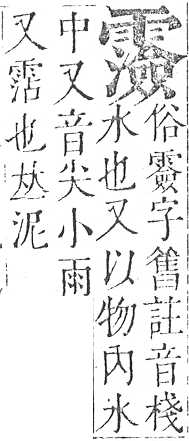 俗靈字舊註音棧
水也又以物內水
中又音尖小雨
又霑也𠀤泥